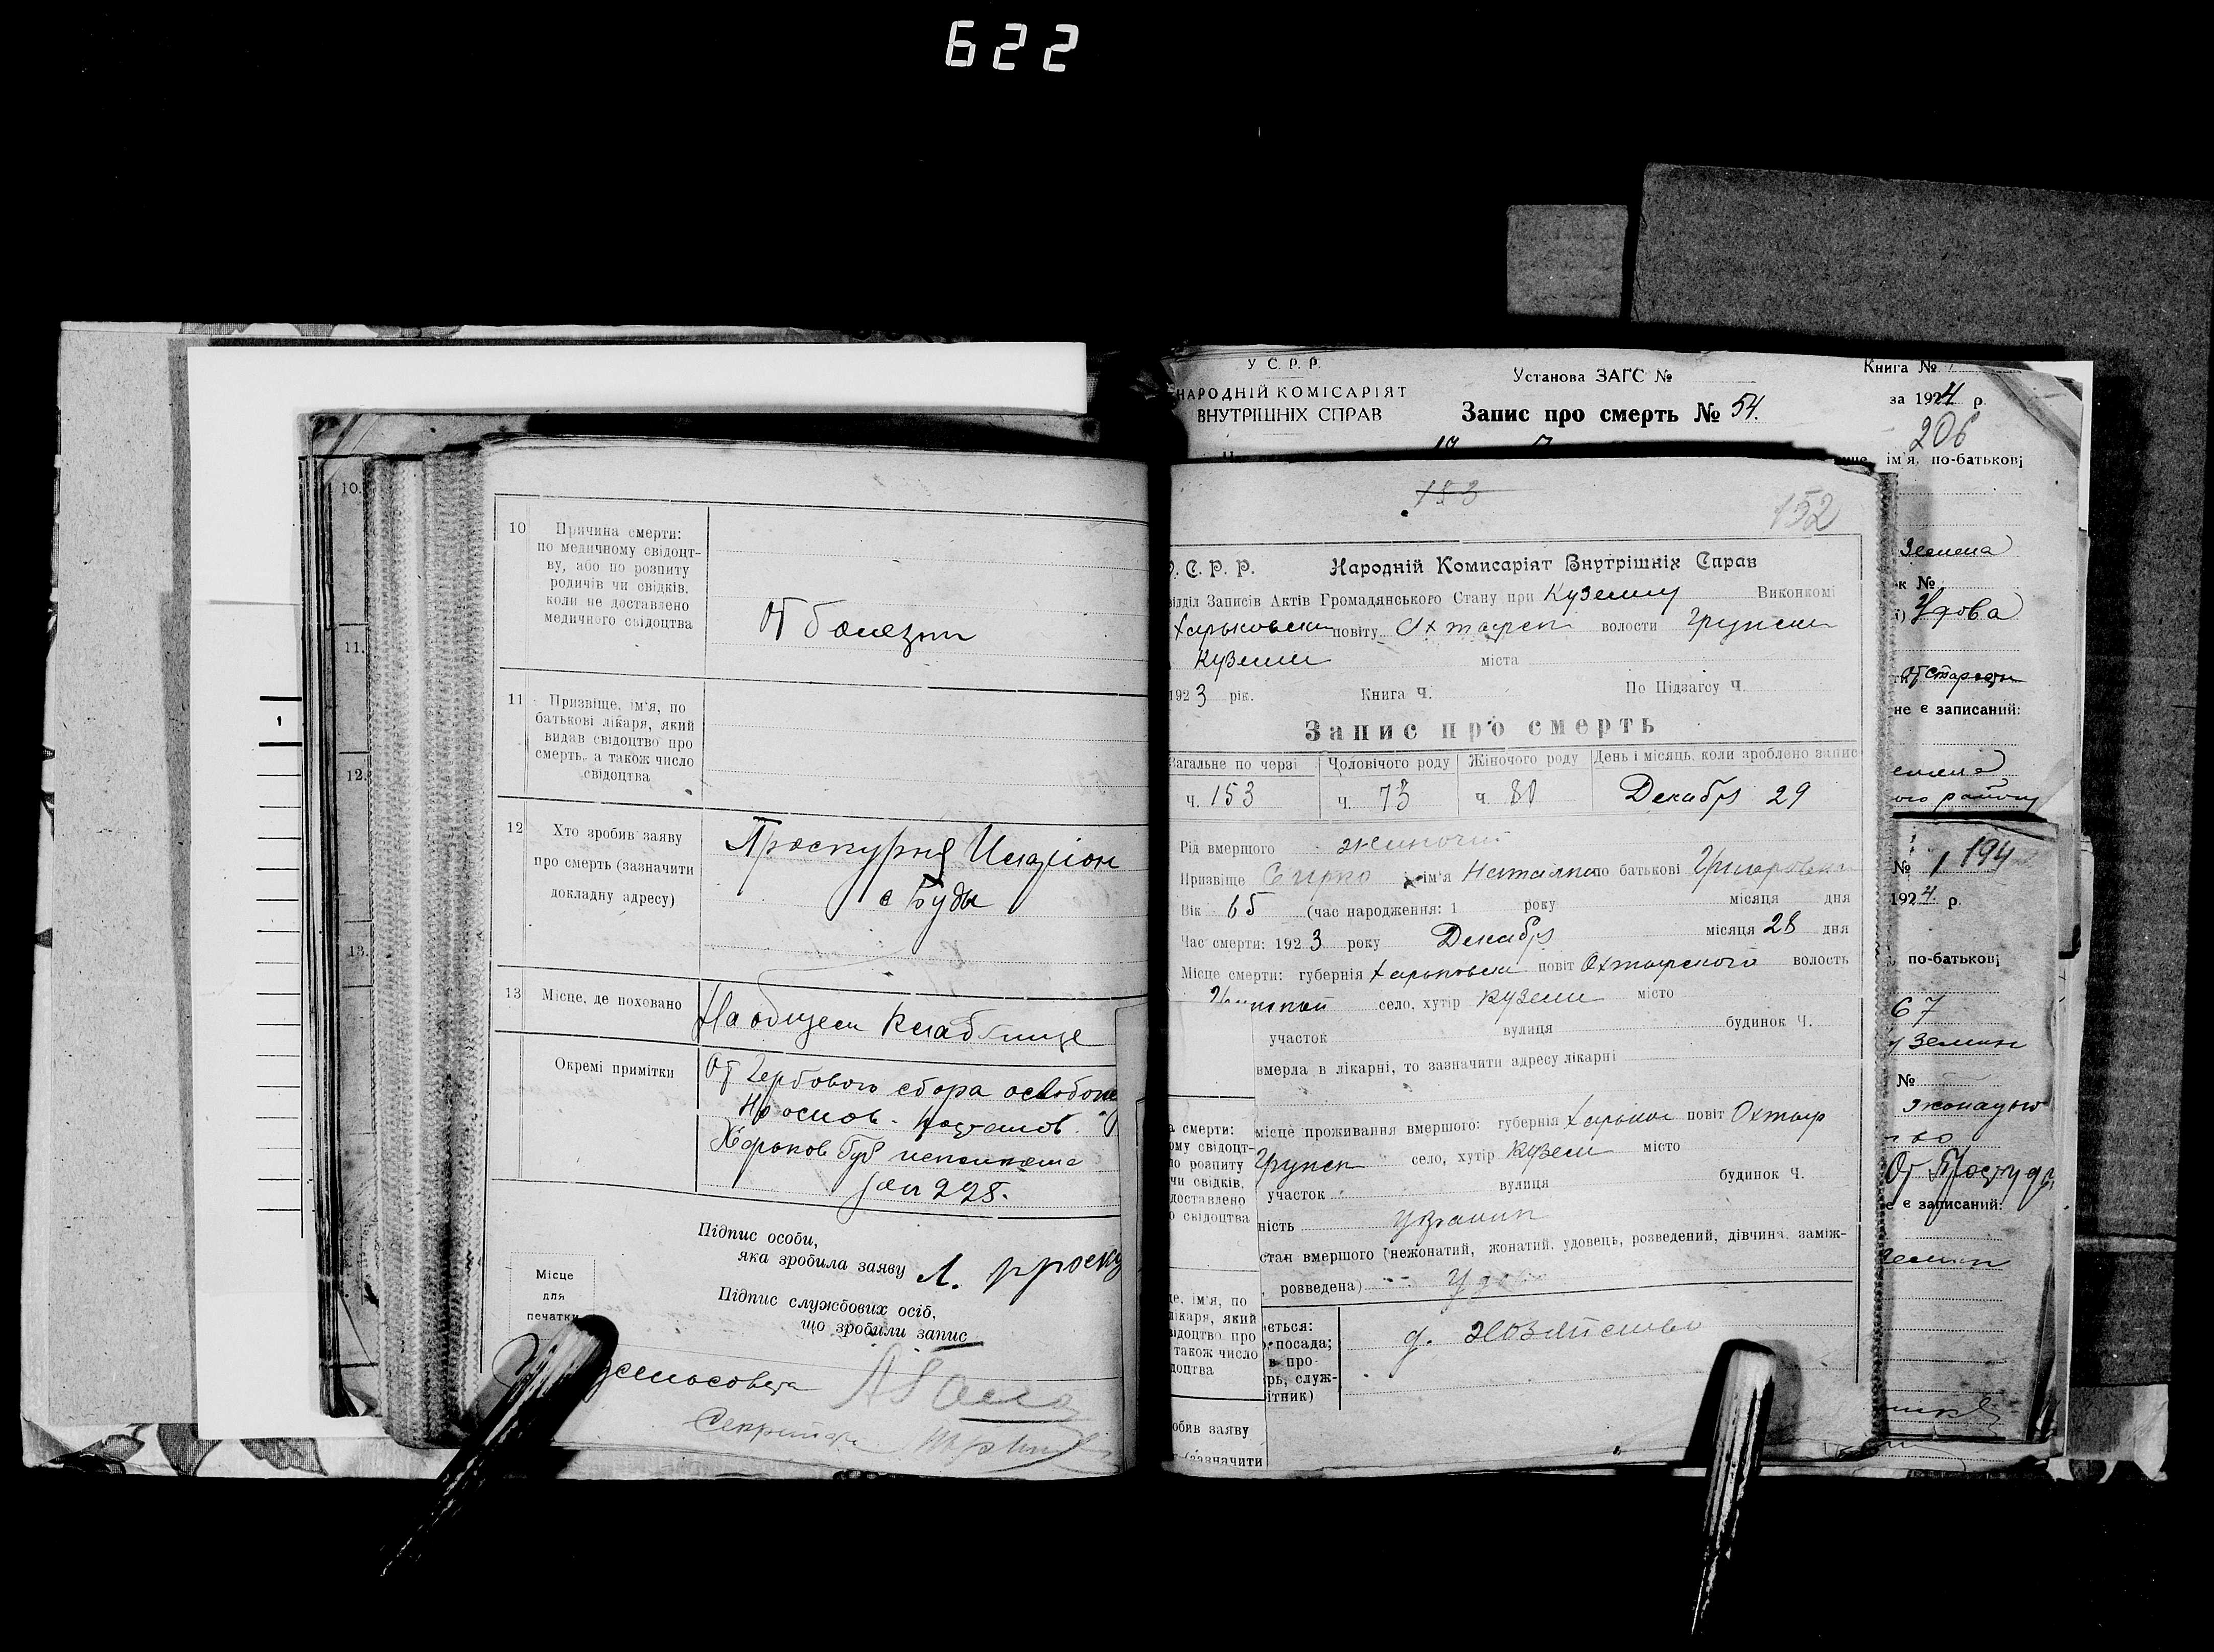 622
10.
11.
12.
13.
1
10 Причина смерти:
по медичному свідоцт-
ву, або по розпиту
родичів чи свідків,
коли не доставлено
медичного свідоцтва
От болезни
11 Призвіще, ім'я, по
батькові лікаря, який
видав свідоцтво про
смерть, а також число
свідоцтва
12 Хто зробив заяву
про смерть (зазначити
докладну адресу)
Проскурня Иларіон
с Буды
13 Місце, де поховано
На общем кладбище
Окремі примітки
От гербового сбора освобожд
На основ. постанов.
Харьков губ исполкома
за 228.
Підпис особи,
яка зробила заяву Л. проску
Місце
для
печатки
Підпис службових осіб,
що зробили запис
сельсовета
Секретарь
У С. Р. Р.
НАРОДНІЙ КОМІСАРІЯТ
ВНУТРІШНІХ СПРАВ
Установа ЗАГС №
Запис про смерть № 54.
Книга №
за 1924 р.
206
ім'я, по-батькові
153
152
С. Р. Р. Народній Комисаріят Внутрішніх Справ
ідділ Записів Актів Громадянського Стану при Куземину Виконкомі
Харьковски повіту Охтырск волости Грунски
Куземи міста
1923 рік. Книга Ч. По Підзагсу Ч.
Запис про смерть
Загальне по черзі Чоловічого роду Жіночого роду День і місяць, коли зроблено запис
ч. 153 ч. 73 ч. 80 Декабря 29
Рід вмершого жиночий
Призвіще Сирко і ім'я Наталка по батькові Григоровна
Вік 65 (час народження: 1 року місяця дня
Час смерти: 1923 року Декабря місяця 28 дня
Місце смерти: губернія Харьковски повіт Охтырского волость
село, хутір Куземи місто
участок вулиця будинок Ч.
вмерла в лікарні, то зазначити адресу лікарні
місце проживання вмершого: губернія Харьков повіт Охтыр
Грунск село, хутір Куземи місто
участок вулиця будинок Ч.
ність
стан вмершого (нежонатий, жонатий, удовець, розведений, дівчина, заміж-
розведена) Удова
ється:
посада;
в про-
рь, служ-
ітник)
д. хозяйство
а смерти:
ому свідоцт-
о розпиту
чи свідків,
доставлено
о свідоцтва
е, ім'я, по
лікаря, який
відоцтво про
також число
доцтва
обив заяву
(зазначити
к №
Удова
От старости
не є записаний:
ого району
№ 1 194
1924 р.
по-батькові
67
№
От Простуды
е є записаний: